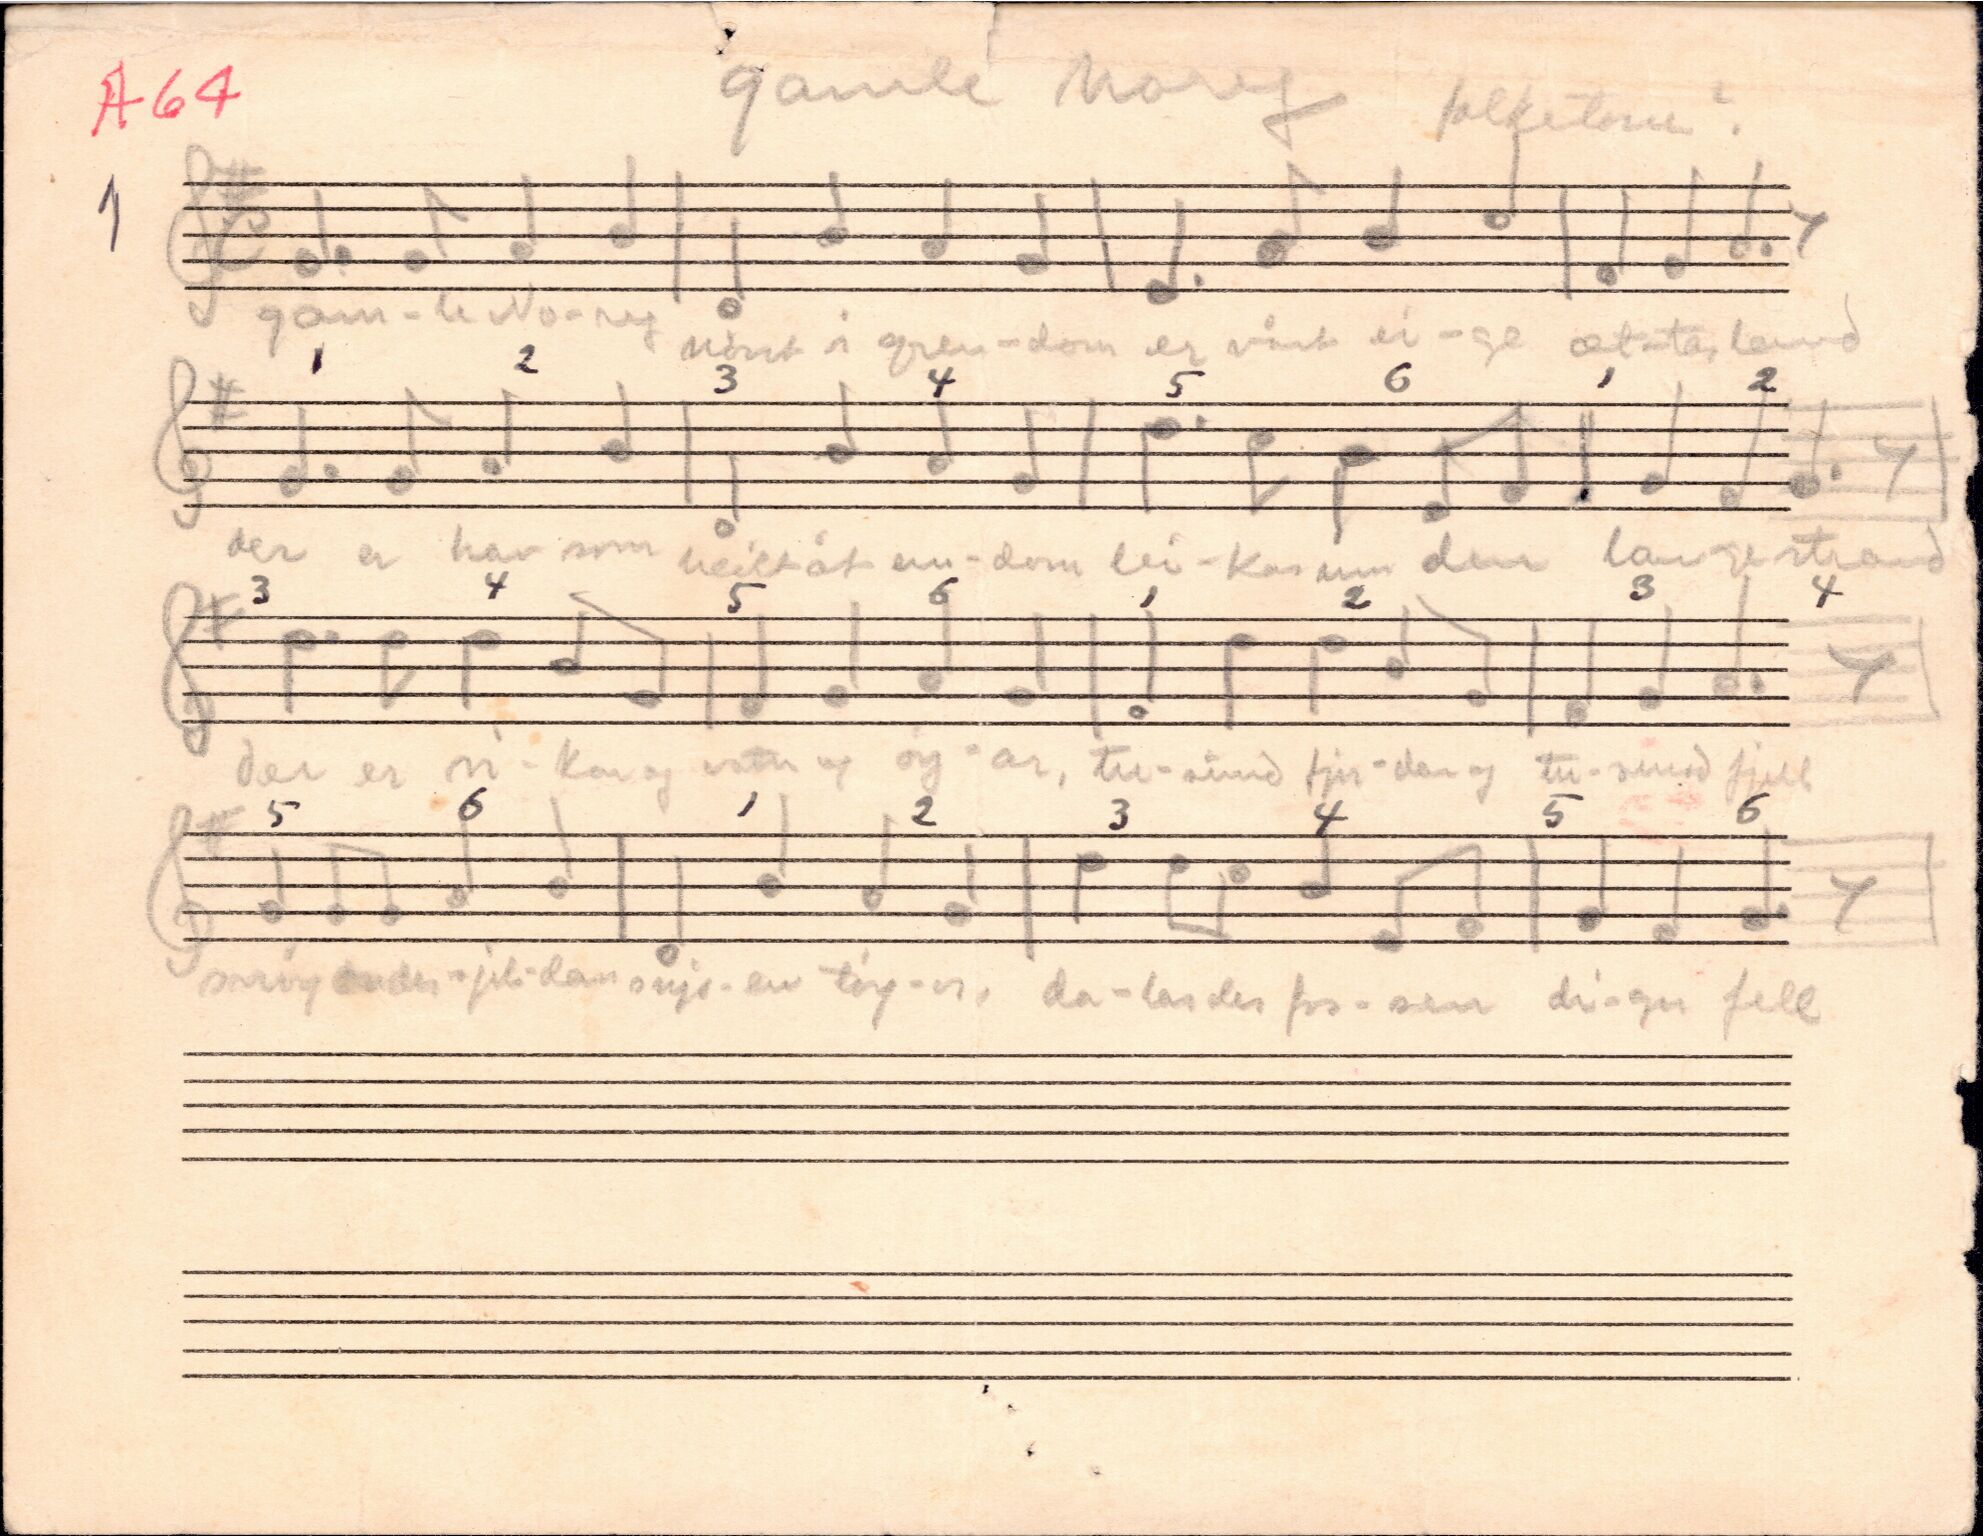 A64
gamle Noreg folketone?
1
gam-le No-reg nörst i gren-dom er vårt ei-ge æt-tar land
1 2 3 4 5 6 1 2
der er hav som heilt åt en-dom lei-kar um den lan-ge strand
3 4 5 6 1 2 3 4
der er vi-kar og vatn og öy-ar, tu-sund fjor-dar og tu-sund fjell
5 6 1 2 3 4 5 6
snjo-en töy-er, da-lar der fos-sen di-ger fell